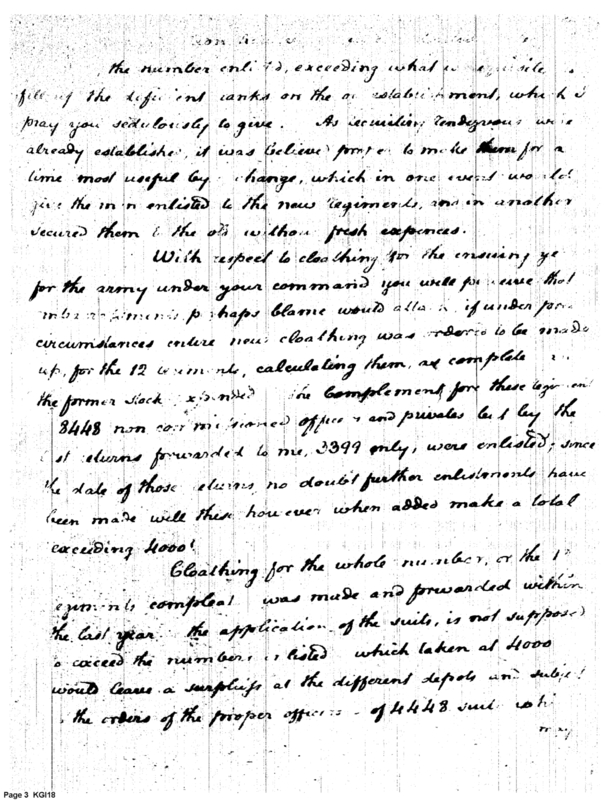 the number enlisted, exceeding what is requisite
filling the deficient ranks on the establishment, which I
pray you sedulously to give. As recruiting rendezvous were
already established, it was believed proper to make them for a
time most useful by change, which in one event would
give the men enlisted to the new regiments, and in another
secured them to the old without fresh expences.
With respect to cloathing for the ensuing ye
for the army under your command you will perceive that
perhaps blame would attach, if under
circumstances entire new cloathing was ordered to be made
up, for the 12 regiments, calculating them, as complete
the former stock expended the Complement for these regiments
8448 non commissioned officers and privates but by the
last returns forwarded to me, 3399 only, were enlisted; since
the date of those returns no doubt further enlistments have
been made will these however when added make a total
exceeding 4000?
Cloathing for the whole number, or the 12
regiments compleat was made and forwarded within
the last year the application of the suits, is not supposed
to exceed the numbers enlisted which taken at 4000
would leave a surpluss at the different depots and subject
to the orders of the proper officers of 4448 suits whi
may
Page 3 KGI18